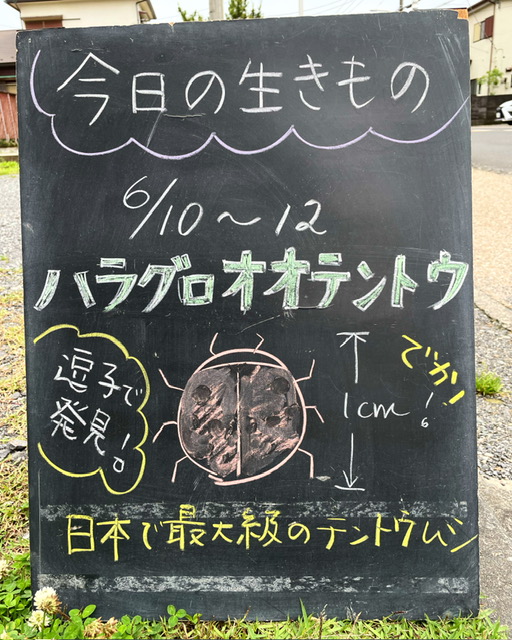 今日の生きもの
6/10～12
ハラグロオオテントウ
逗子で
発見!。
でかっ!
1cm
日本で最大級のテントウムシ